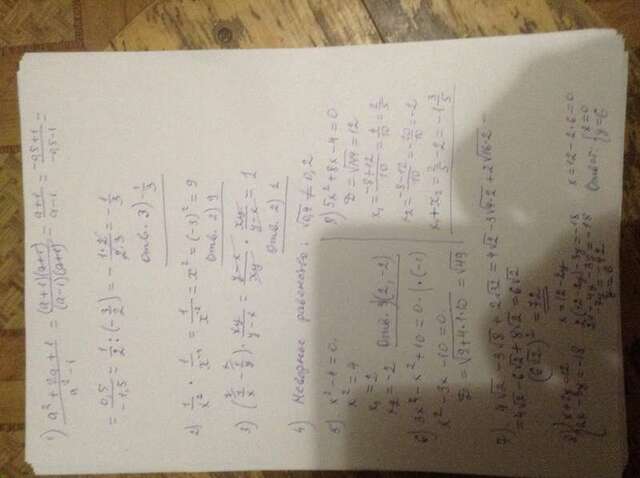 1) a² + 2a + 1 / a² - 1 = (a+1)(a+1) / (a-1)(a+1) = a+1 / a-1 = -0,5+1 / -0,5-1 =
= 0,5 / -1,5 = 1/2 : (-3/2) = - 1·2 / 2·3 = - 1/3
Отв. 3) - 1/3
2) 1/x² · 1/x⁻⁴ = 1/x⁻² = x² = (-3)² = 9
Отв. 2) 9
3) (1/x - 1/y) · xy / y-x = y-x / xy · xy / y-x = 1
Отв. 2) 1
4) Неверное равенство: √0,4 ≠ 0,2
5) x² - 4 = 0
x² = 4
x₁ = 2
x₂ = -2 Отв. (2; -2)
6) 3x - x² + 10 = 0 · | · (-1)
x² - 3x - 10 = 0
D = √9+4·1·10 = √49
8) 5x² + 8x - 4 = 0
D = √144 = 12
x₁ = -8+12 / 10 = 4/10 = 2/5
x₂ = -8-12 / 10 = -20/10 = -2
x₁ + x₂ = 2/5 - 2 = -1 3/5
7) 4√2 - 3√8 + 2√32 = 4√2 - 3√4·2 + 2√16·2 =
= 4√2 - 6√2 + 8√2 = 6√2
(6√2)² = 72
8) { x + 2y = 12
2x - 3y = -18
x = 12 - 2y
2(12-2y) - 3y = -18
24 - 4y - 3y = -18
-7y = -42
y = 6
x = 12 - 2·6 = 0
Ответ: { x = 0
y = 6